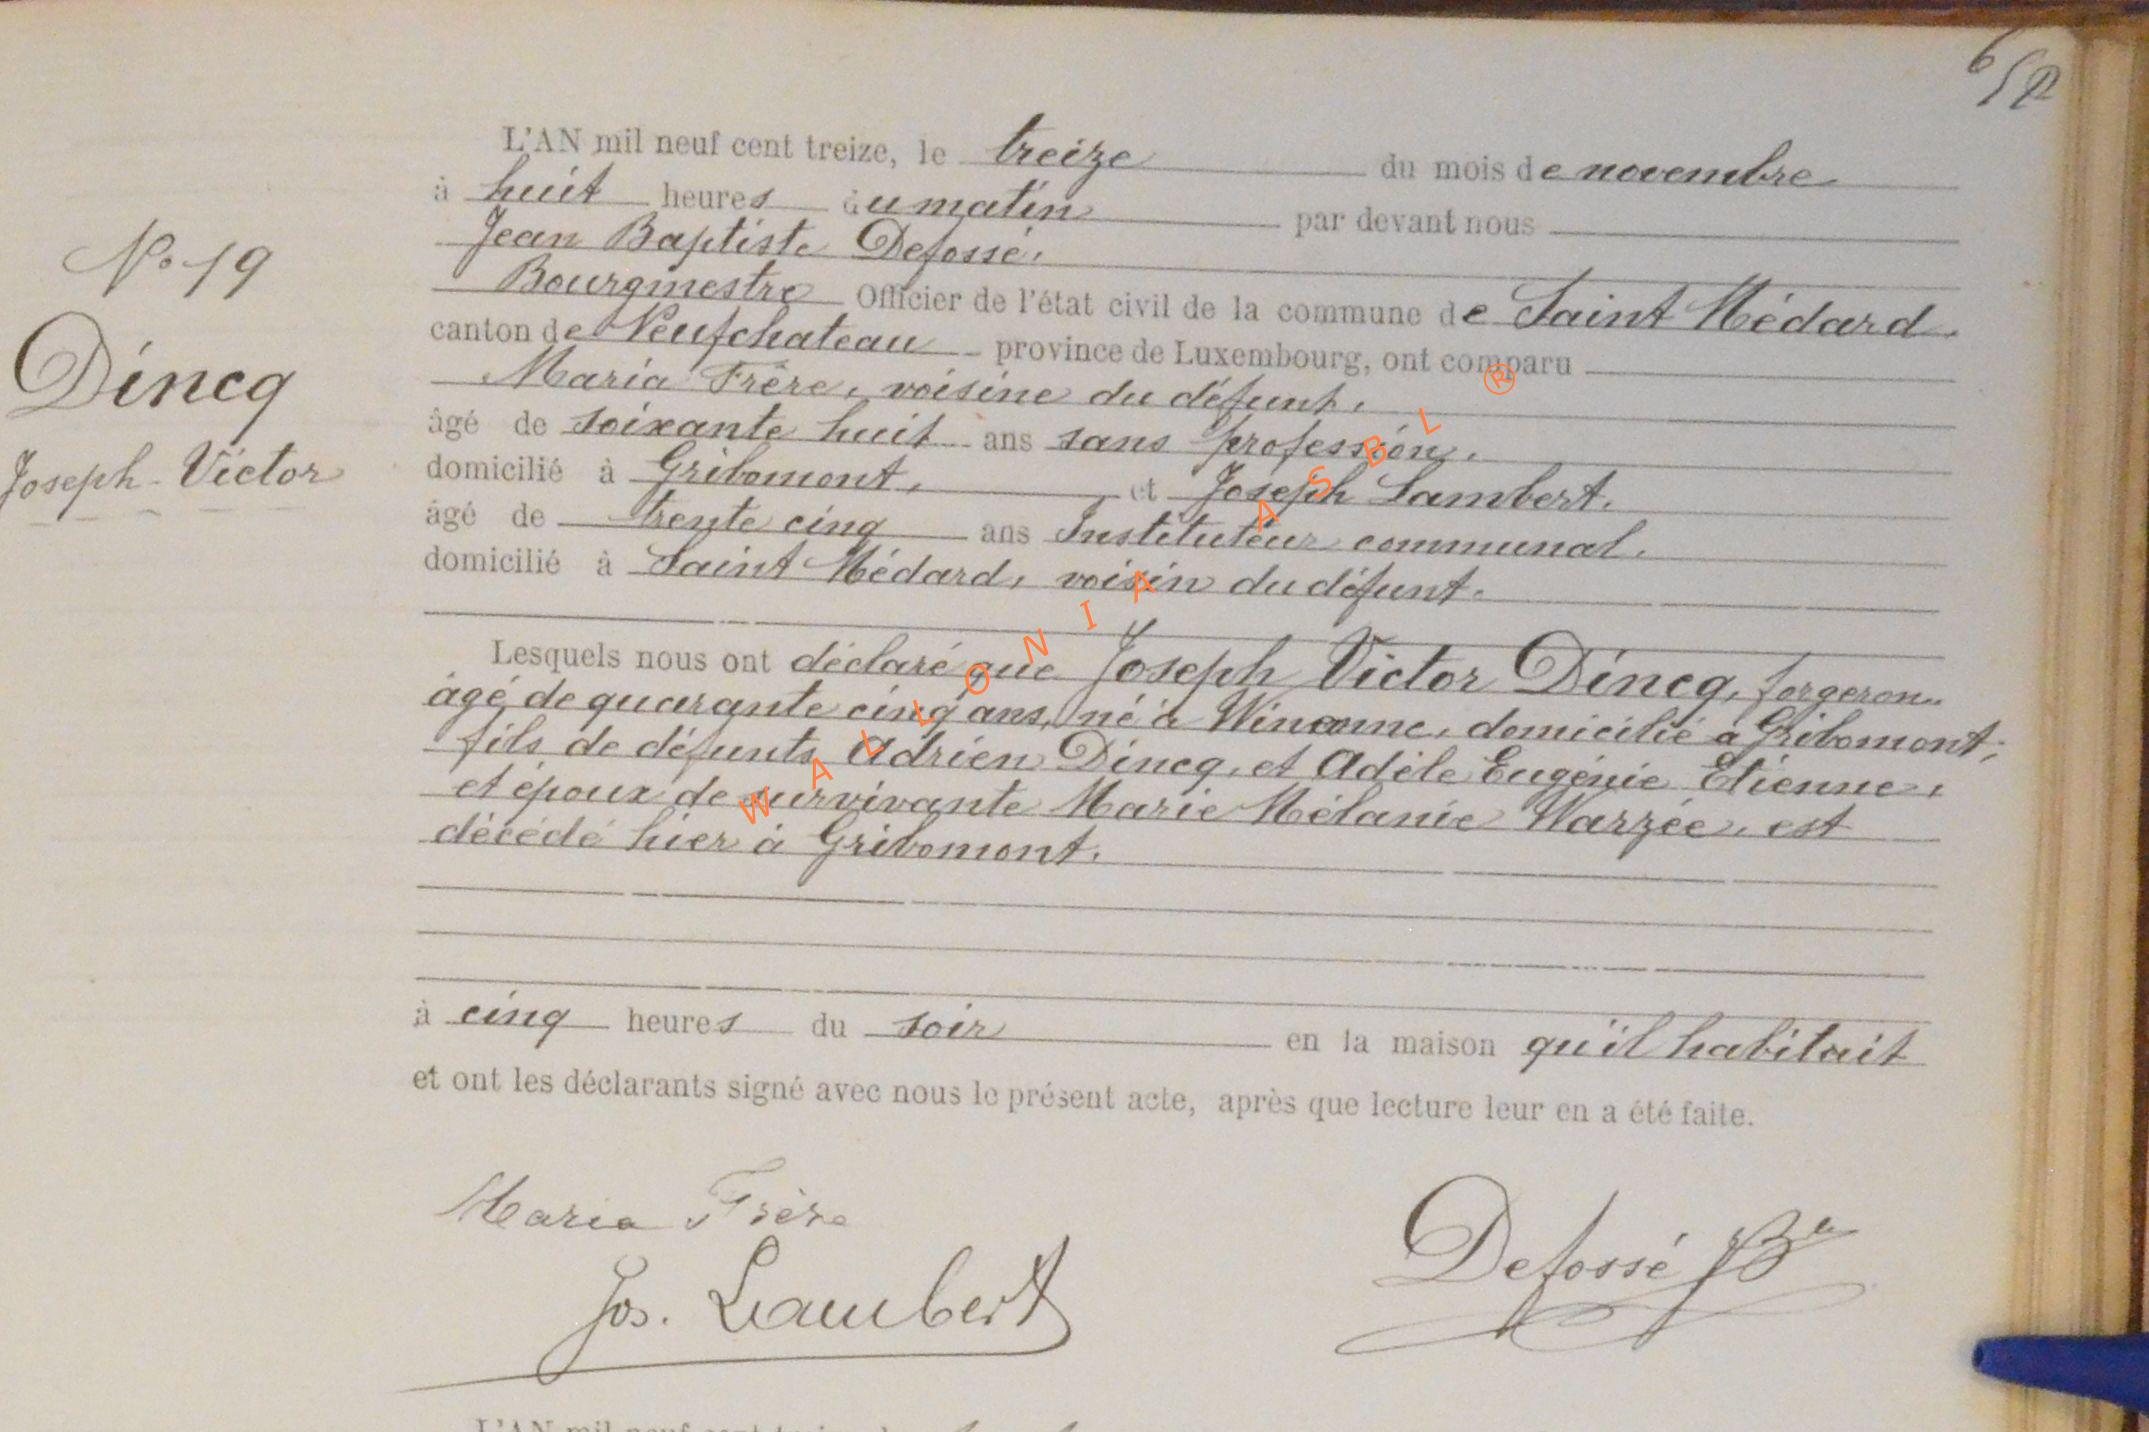 6/52
L'AN mil neuf cent treize, le treize du mois de novembre
à huit heures du matin par devant nous
Jean Baptiste Defossé.
Bourgmestre Officier de l'état civil de la commune de Saint Médard.
canton de Neufchateau province de Luxembourg, ont comparu
Maria Frère, voisine du défunt,
âgé de soixante huit ans sans profession.
domicilié à Gribomont, et Joseph Lambert.
âgé de trente cinq ans Instituteur communal.
domicilié à Saint Médard, voisin du défunt.
N° 19
Dincq
Joseph-Victor
Lesquels nous ont déclaré que Joseph Victor Dincq, forgeron
âgé de quarante cinq ans, né à domicilié à Gribomont,
fils de défunts Adrien Dincq, et Adèle Eugénie Etienne,
et époux de survivante Marie Mélanie Warzée, est
décédé hier à Gribomont.
à cinq heures du soir en la maison qu'il habitait
et ont les déclarants signé avec nous le présent acte, après que lecture leur en a été faite.
Maria Frère
Jos. Lambert
Defossé JBte
WALLONIA ASBL ®
L'AN mil neuf cent treize